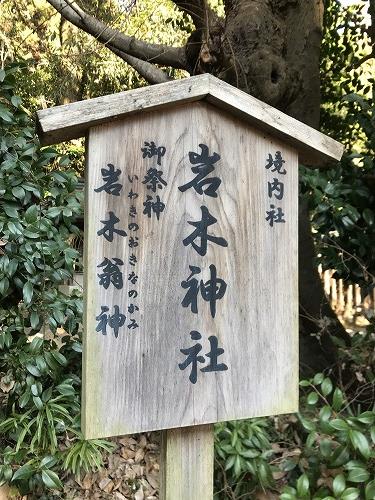 境内社
岩木神社
御祭神
いわきのおきなのかみ
岩木翁神